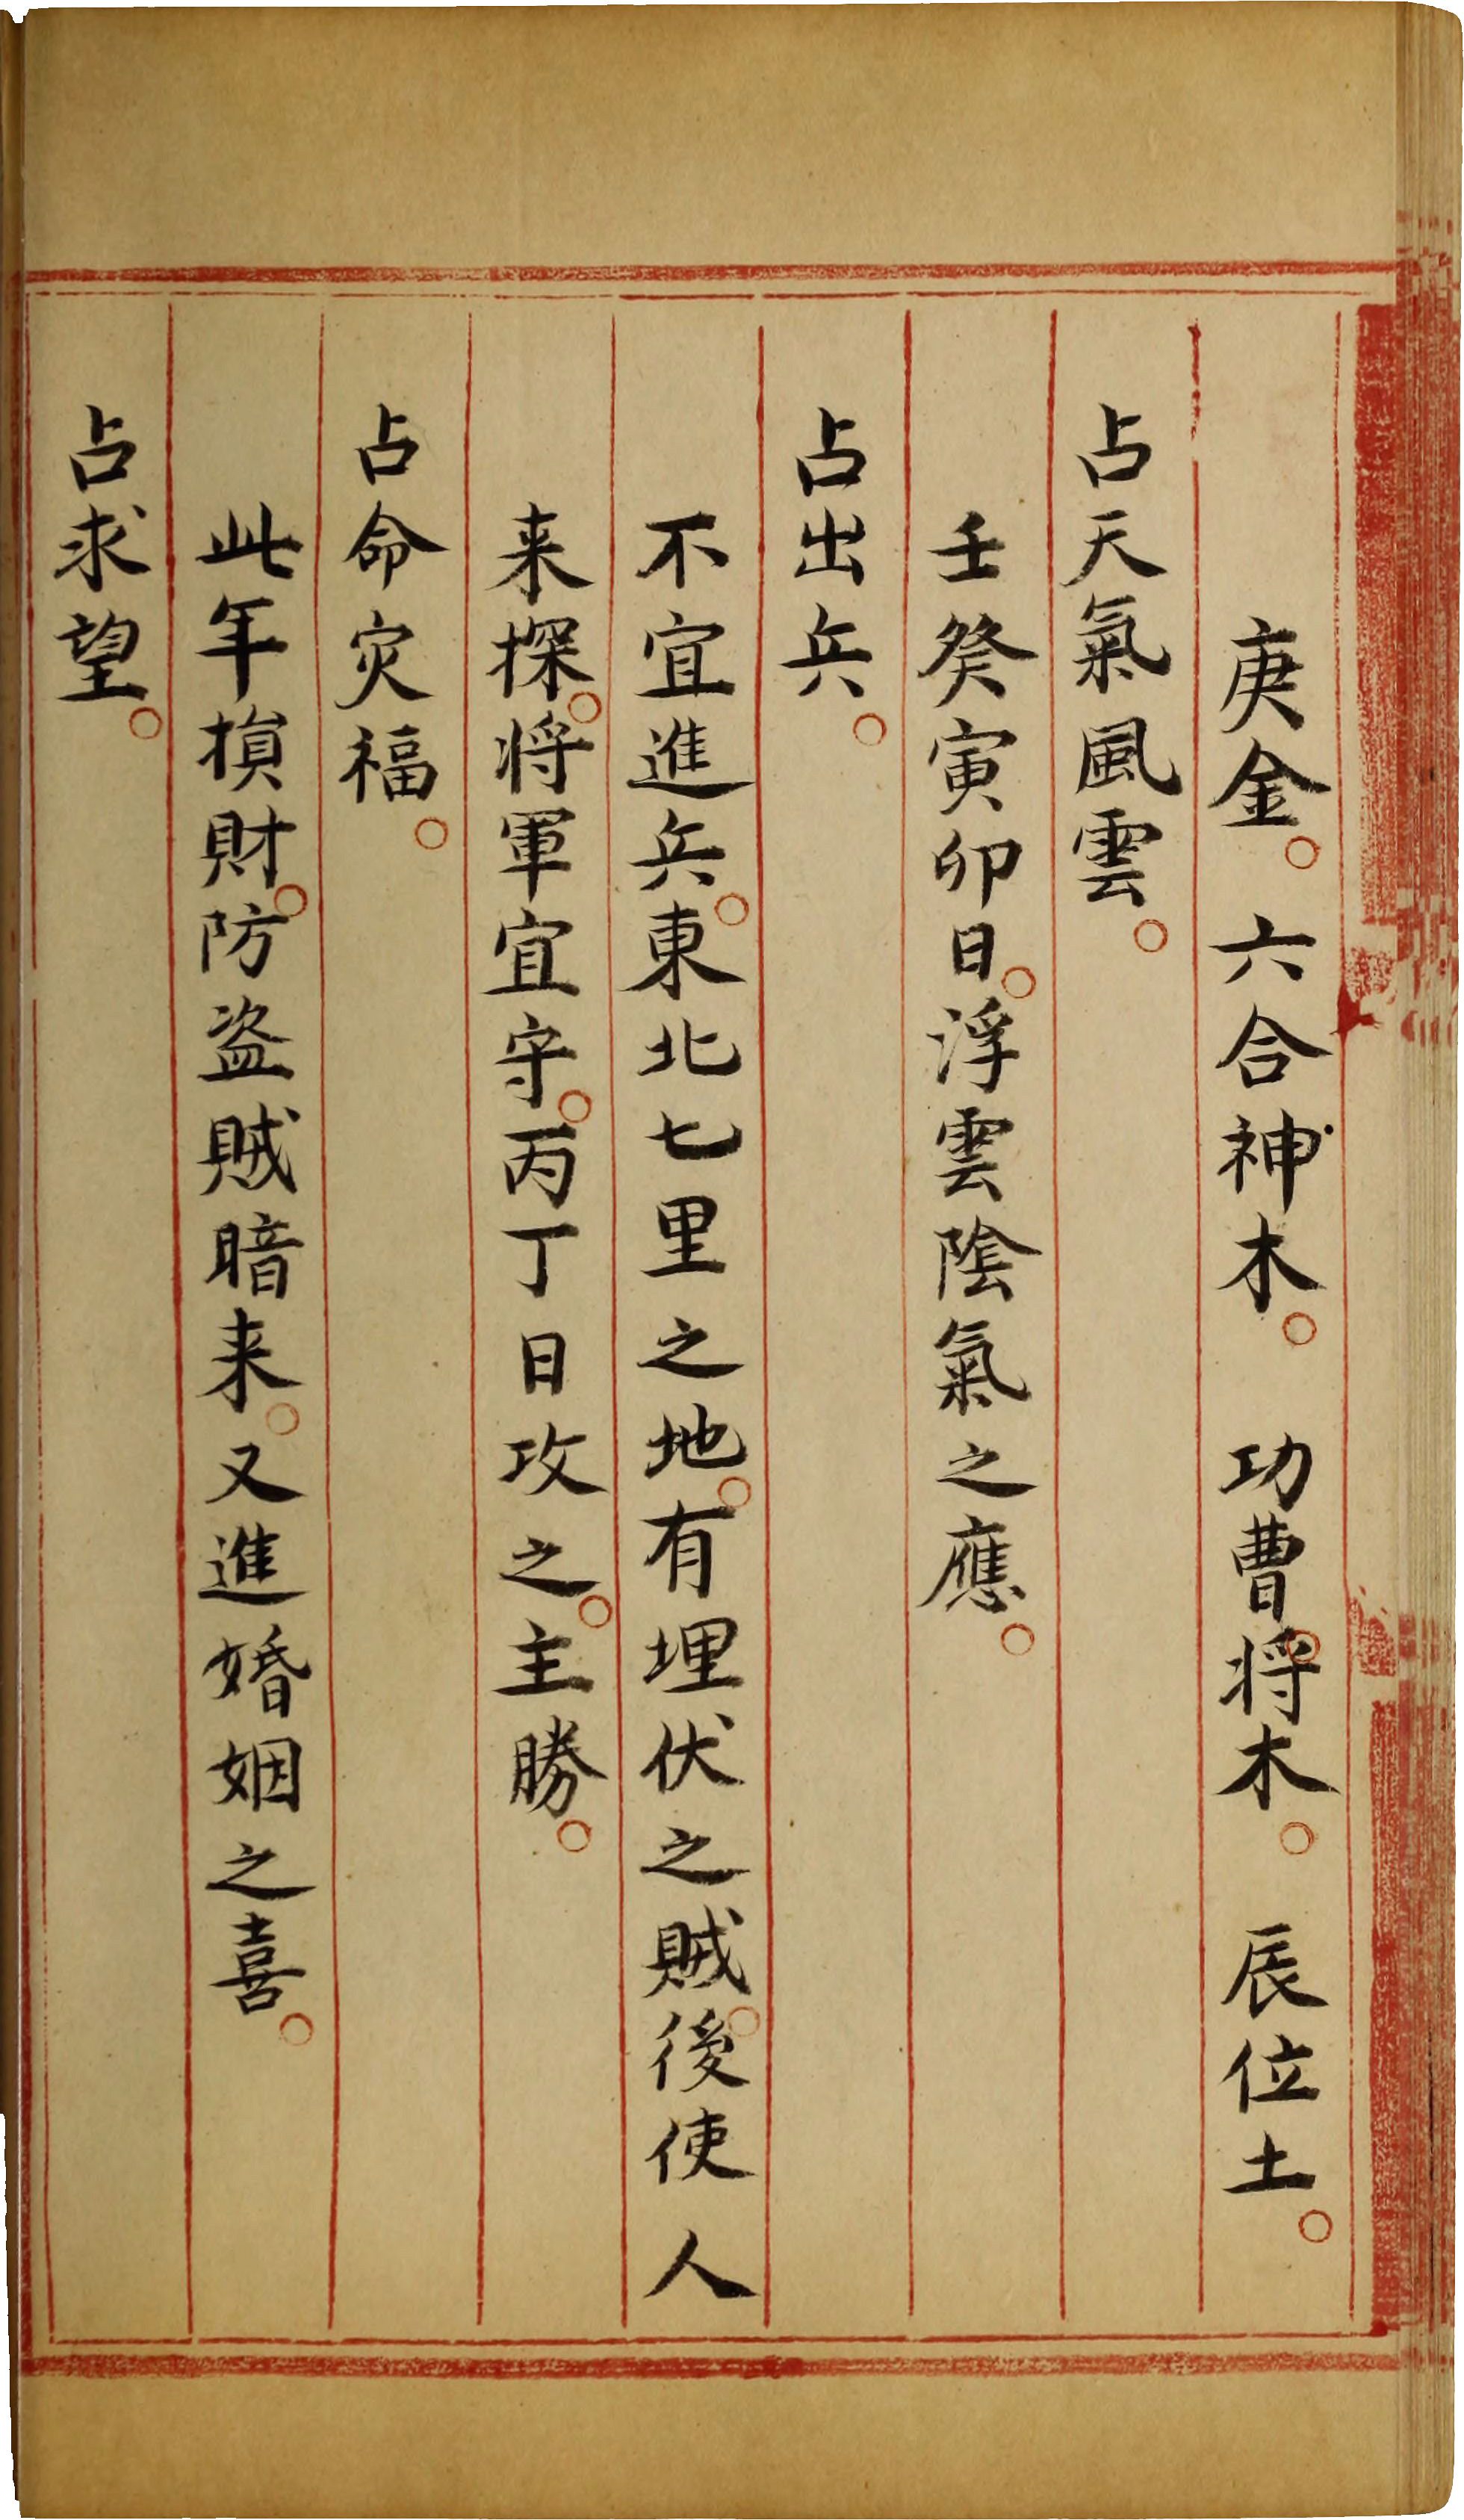 庚金。六合神木。功曹。将木。辰位土。
占天氣風雲。
壬癸寅卯日。浮雲陰氣之應。
占出兵。
不宜進兵。東北七里之地。有埋伏之賊。後使人
来探。将軍宜守。丙丁日攻之。主勝。
占命灾福。
此年損財。防盗賊暗来。又進婚姻之喜。
占求望。